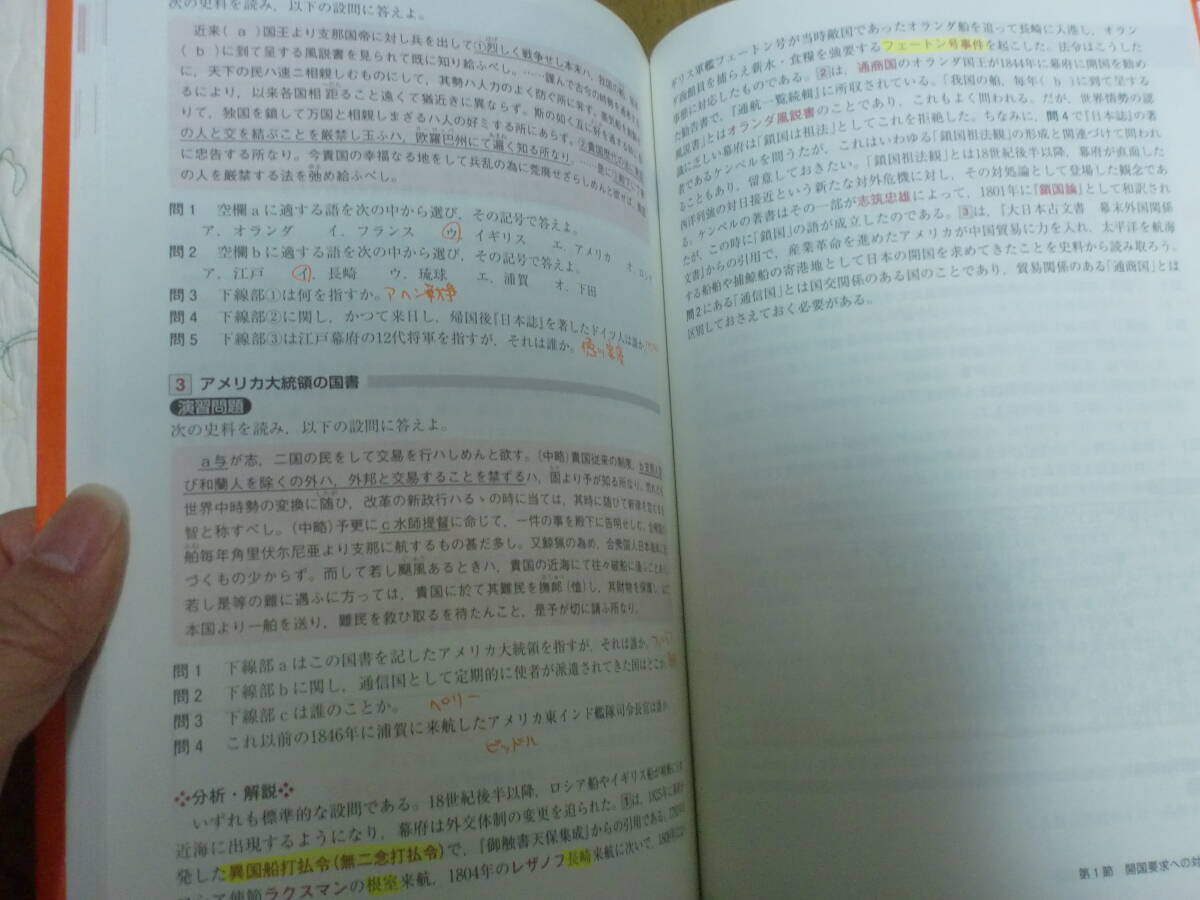 次の史料を読み、以下の設問に答えよ。
近来（a）国王より支那国帝に対し兵を出して①烈しく戦争せし本末ハ、我国の
（b）に到て呈する風説書を見られて既に知り給ふべし。……謹んで古今の時勢を通考する
に、天下の民ハ速ニ相親しむものにして、其勢ハ人力のよく防ぐ所に非ず。
るにより、以来各国相距ること遠くて猶近きに異ならず。斯の如く互に好を通ずる
りて、独国を鎖して万国と相親しまざるハ人の好ミする所にあらず。②貴国歴代の
の人と交を結ぶことを厳禁し玉ふハ、欧羅巴州にて遍く知る所なり。……
に忠告する所なり。今貴国の幸福なる地をして兵乱の為に荒廃せざらしめんと
の人を厳禁する法を弛め給ふべし。
問1 空欄aに適する語を次の中から選び、その記号で答えよ。
ア．オランダ イ．フランス ウ．イギリス エ．アメリカ オ．ロシア
問2 空欄bに適する語を次の中から選び、その記号で答えよ。
ア．江戸 イ．長崎 ウ．琉球 エ．浦賀 オ．下田
問3 下線部①は何を指すか。アヘン戦争
問4 下線部②に関し、かつて来日し、帰国後『日本誌』を著したドイツ人は誰か。
問5 下線部③は江戸幕府の12代将軍を指すが、それは誰か。
3 アメリカ大統領の国書
演習問題
次の史料を読み、以下の設問に答えよ。
a与が志、二国の民をして交易を行ハしめんと欲す。（中略）貴国従来の制度、b支那人及
び和蘭人を除くの外ハ、外邦と交易することを禁ずるハ、固より予が知る所なり。然れども
世界中時勢の変換に随ひ、改革の新政行ハるゝの時に当ては、其時に随ひて新律を定むるを
智と称すべし。（中略）予更にc水師提督に命じて、一件の事を殿下に告明せしむ。合衆国の
舶毎年角里伏尔尼亜より支那に航するもの甚だ多し。又鯨猟の為め、合衆国人日本海岸に近
づくもの少からず。而して若し颶風あるときハ、貴国の近海にて往々破船に逢ふことあり。
若し是等の難に遇ふに方っては、貴国に於て其難民を撫卹（恤）し、其財物を保護し、以て
本国より一舶を送り、難民を救ひ取るを待たんこと、是予が切に請ふ所なり。
問1 下線部aはこの国書を記したアメリカ大統領を指すが、それは誰か。
問2 下線部bに関し、通信国として定期的に使者が派遣されてきた国はどこか。
問3 下線部cは誰のことか。ペリー
問4 これ以前の1846年に浦賀に来航したアメリカ東インド艦隊司令長官は誰か。
ビッドル
分析・解説
いずれも標準的な設問である。18世紀後半以降、ロシア船やイギリス船が頻繁に日本
近海に出現するようになり、幕府は外交体制の変更を迫られた。1は、1825年に幕府が
発した異国船打払令（無二念打払令）で、『御触書天保集成』からの引用である。
シア使節ラクスマンの根室来航、1804年のレザノフ長崎来航に次いで、1808年には
ギリス軍艦フェートン号が当時敵国であったオランダ船を追って長崎に入港し、オラン
ダ商館員を捕らえ薪水・食糧を強要するフェートン号事件を起こした。法令はこうした
事態に対応したものである。2は、通商国のオランダ国王が1844年に幕府に開国を勧め
た勧告書で、『通航一覧続輯』に所収されている。「我国の船、毎年（b）に到て呈する
風説書」とはオランダ風説書のことであり、これもよく問われる。だが、世界情勢の認
識に乏しい幕府は「鎖国は祖法」としてこれを拒絶した。ちなみに、問4で『日本誌』の著
者であるケンペルを問うたが、これはいわゆる「鎖国祖法観」の形成と関連づけて問われ
ることもあり、留意しておきたい。「鎖国祖法観」とは18世紀後半以降、幕府が直面した
西洋列強の対日接近という新たな対外危機に対し、その対処論として登場した観念であ
る。ケンペルの著書はその一部が志筑忠雄によって、1801年に『鎖国論』として和訳され
たが、この時に「鎖国」の語が成立したのである。3は、『大日本古文書 幕末外国関係
文書』からの引用で、産業革命を進めたアメリカが中国貿易に力を入れ、太平洋を航海
する船舶や捕鯨船の寄港地として日本の開国を求めてきたことを史料から読み取ろう。
問2にある「通信国」とは国交関係のある国のことであり、貿易関係のある「通商国」とは
区別しておさえておく必要がある。
第1節 開国要求への対